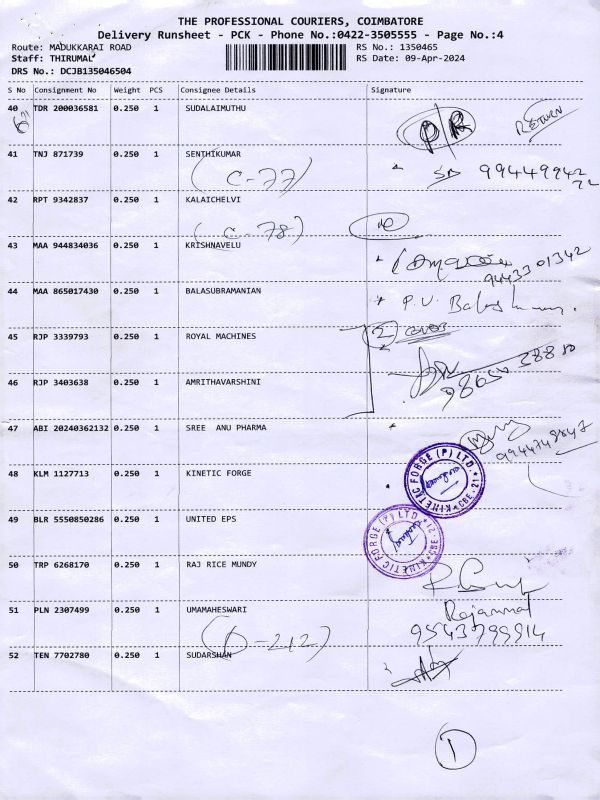 THE PROFESSIONAL COURIERS, COIMBATORE
Delivery Runsheet - PCK - Phone No.:0422-3505555 - Page No.:4
Route: MADUKKARAI ROAD
RS No.: 1350465
Staff: THIRUMAL
RS Date: 09-Apr-2024
DRS No.: DCJB135046504
S No Consignment No Weight PCS Consignee Details Signature
40 TDR 200036581 0.250 1 SUDALAIMUTHU
RETURN
41 TNJ 871739 0.250 1 SENTHIKUMAR
(C-77)
42 RPT 9342837 0.250 1 KALAICHELVI
(C-78)
43 MAA 944834036 0.250 1 KRISHNAVELU
94433 01342
44 MAA 865017430 0.250 1 BALASUBRAMANIAN
P.U.
45 RJP 3339793 0.250 1 ROYAL MACHINES
2 cover
46 RJP 3403638 0.250 1 AMRITHAVARSHINI
47 ABI 20240362132 0.250 1 SREE ANU PHARMA
48 KLM 1127713 0.250 1 KINETIC FORGE
KINETIC FORGE (P) LTD. CBE-21
49 BLR 5550850286 0.250 1 UNITED EPS
KINETIC FORGE (P) LTD. CBE-21
50 TRP 6268170 0.250 1 RAJ RICE MUNDY
51 PLN 2307499 0.250 1 UMAMAHESWARI
Rajammal
9543799914
(D-212)
52 TEN 7702780 0.250 1 SUDARSHAN
1